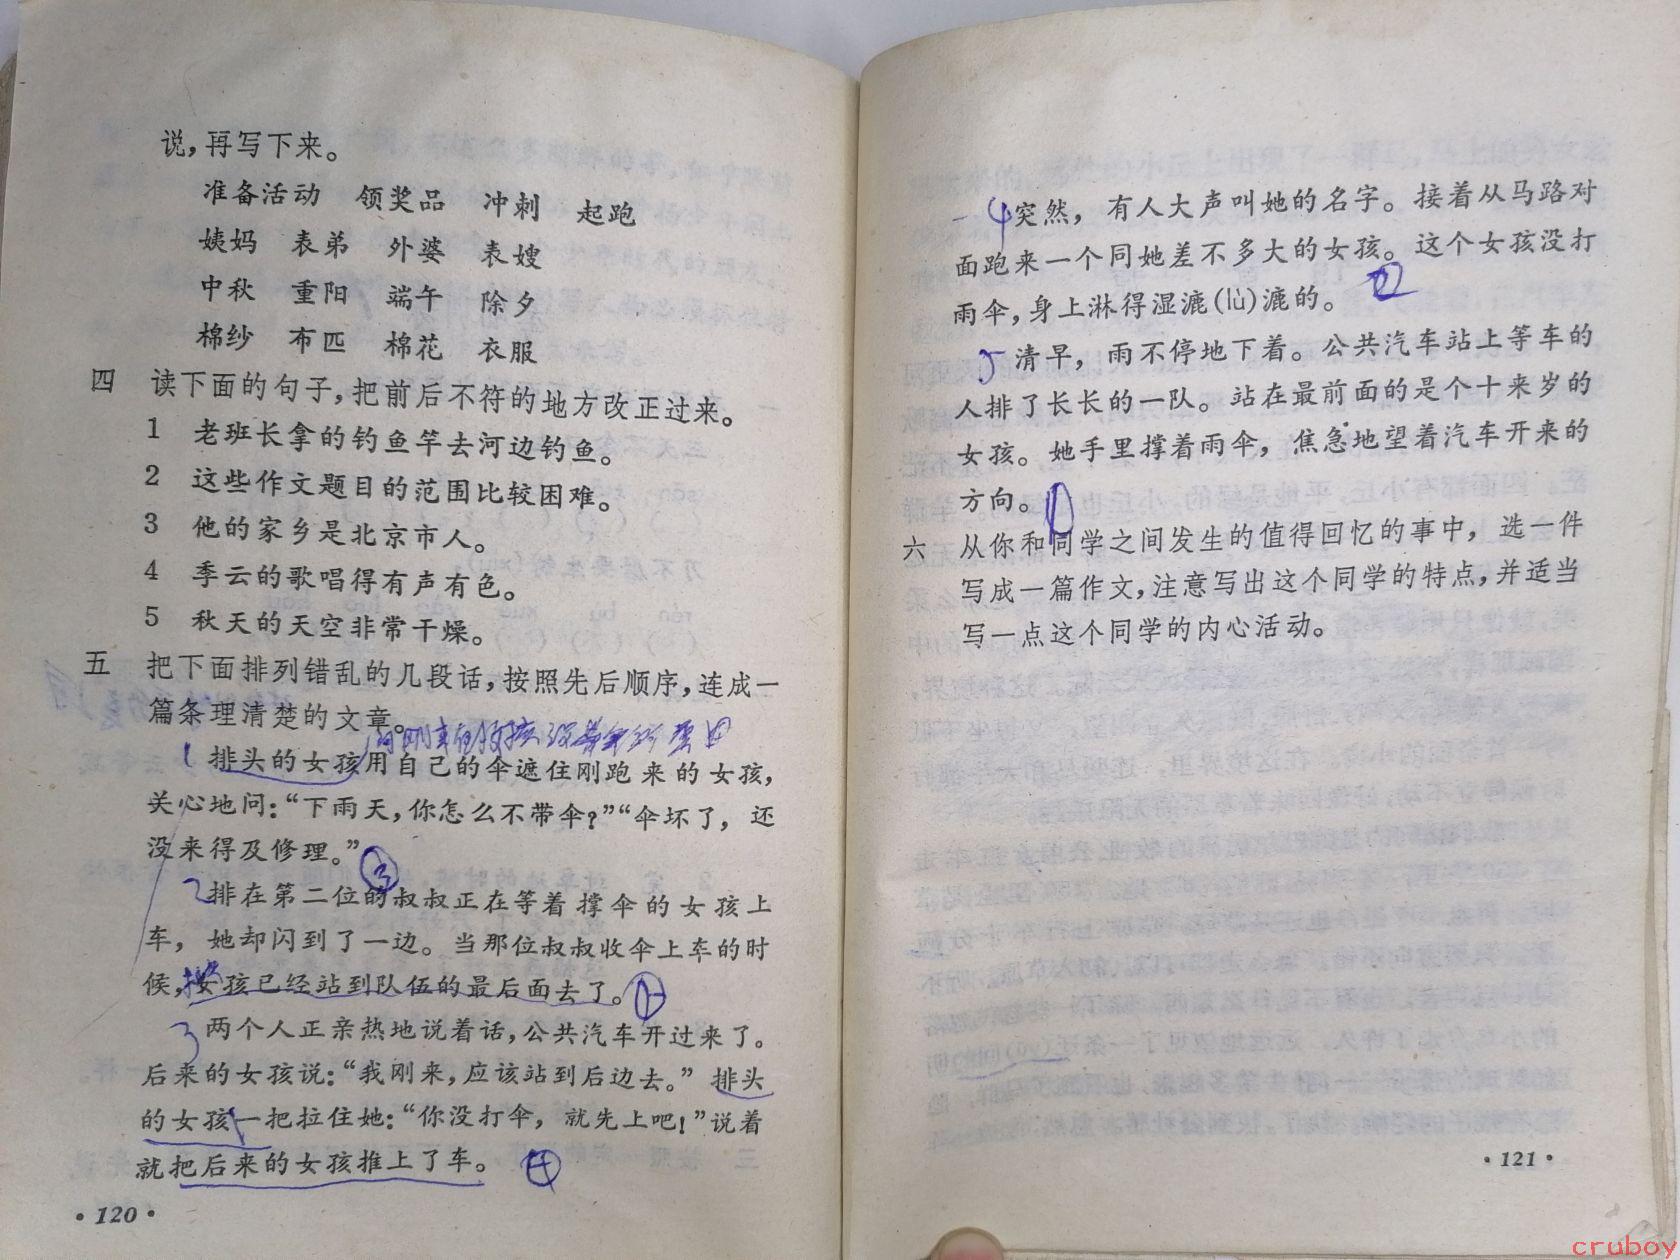 说，再写下来。
准备活动 领奖品 冲刺 起跑
姨妈 表弟 外婆 表嫂
中秋 重阳 端午 除夕
棉纱 布匹 棉花 衣服
四 读下面的句子，把前后不符的地方改正过来。
1 老班长拿的钓鱼竿去河边钓鱼。
2 这些作文题目的范围比较困难。
3 他的家乡是北京市人。
4 季云的歌唱得有声有色。
5 秋天的天空非常干燥。
五 把下面排列错乱的几段话，按照先后顺序，连成一
篇条理清楚的文章。
1 排头的女孩用自己的伞遮住刚跑来的女孩，
关心地问：“下雨天，你怎么不带伞？”“伞坏了，还
没来得及修理。” ③
2 排在第二位的叔叔正在等着撑伞的女孩上
车，她却闪到了一边。当那位叔叔收伞上车的时
候，女孩已经站到队伍的最后面去了。
3 两个人正亲热地说着话，公共汽车开过来了。
后来的女孩说：“我刚来，应该站到后边去。”排头
的女孩一把拉住她：“你没打伞，就先上吧！”说着
就把后来的女孩推上了车。
·120·
4 突然，有人大声叫她的名字。接着从马路对
面跑来一个同她差不多大的女孩。这个女孩没打
雨伞，身上淋得湿漉(lù)漉的。 ②
5 清早，雨不停地下着。公共汽车站上等车的
人排了长长的一队。站在最前面的是个十来岁的
女孩。她手里撑着雨伞，焦急地望着汽车开来的
方向。 ①
六 从你和同学之间发生的值得回忆的事中，选一件
写成一篇作文，注意写出这个同学的特点，并适当
写一点这个同学的内心活动。
·121·
cruboy